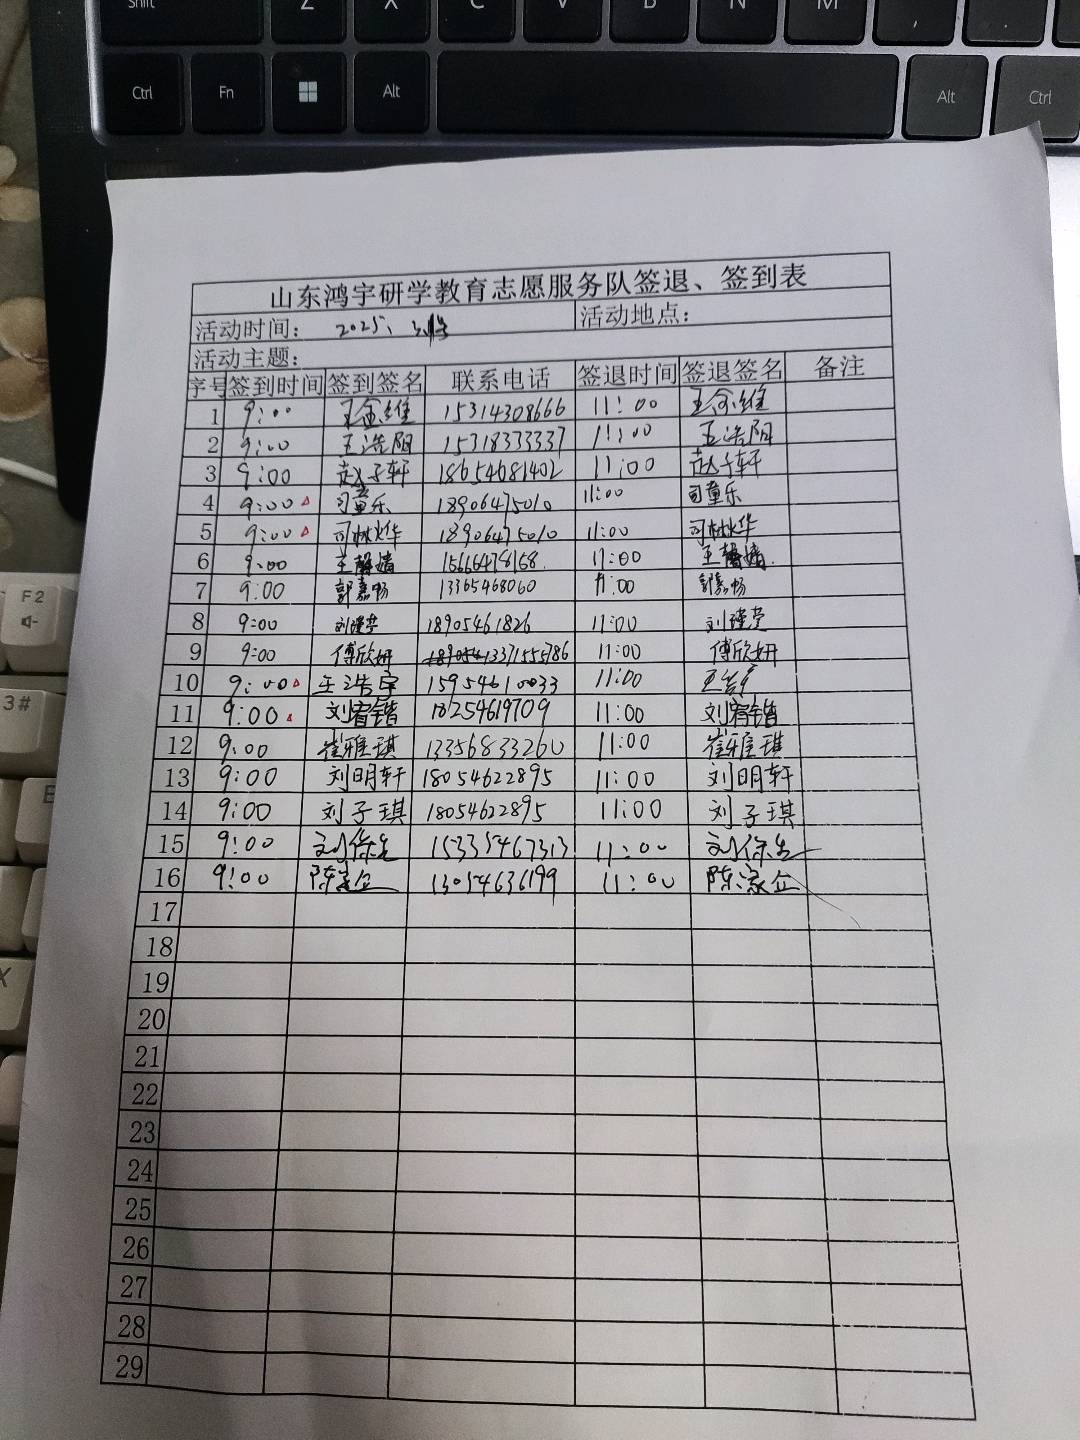 Shift Z X C V B N M , .
Ctrl Fn Alt Alt Ctrl
F2
3 #
E
X
山东鸿宇研学教育志愿服务队签退、签到表
活动时间: 2025、 活动地点:
活动主题:
序号 签到时间 签到签名 联系电话 签退时间 签退签名 备注
1 9:00 王金维 15314308666 11:00 王金维
2 9:00 王浩阳 15318333337 11:00 王浩阳
3 9:00 赵子轩 18654681402 11:00 赵子轩
4 9:00 司童乐 18906475010 11:00 司童乐
5 9:00 司林烨 18906475010 11:00 司林烨
6 9:00 王馨嫱 15666478168 11:00 王馨嫱
7 9:00 郭嘉畅 13365468060 11:00 郭嘉畅
8 9:00 刘瑾莹 18905461826 11:00 刘瑾莹
9 9:00 傅欣妍 13371555786 11:00 傅欣妍
10 9:00 王浩宇 15954610033 11:00
11 9:00 刘宥锴 18254619709 11:00 刘宥锴
12 9:00 崔雅琪 13356833260 11:00 崔雅琪
13 9:00 刘明轩 18054622895 11:00 刘明轩
14 9:00 刘子琪 18054622895 11:00 刘子琪
15 9:00 15335467313 11:00
16 9:00 13054636199 11:00
17
18
19
20
21
22
23
24
25
26
27
28
29